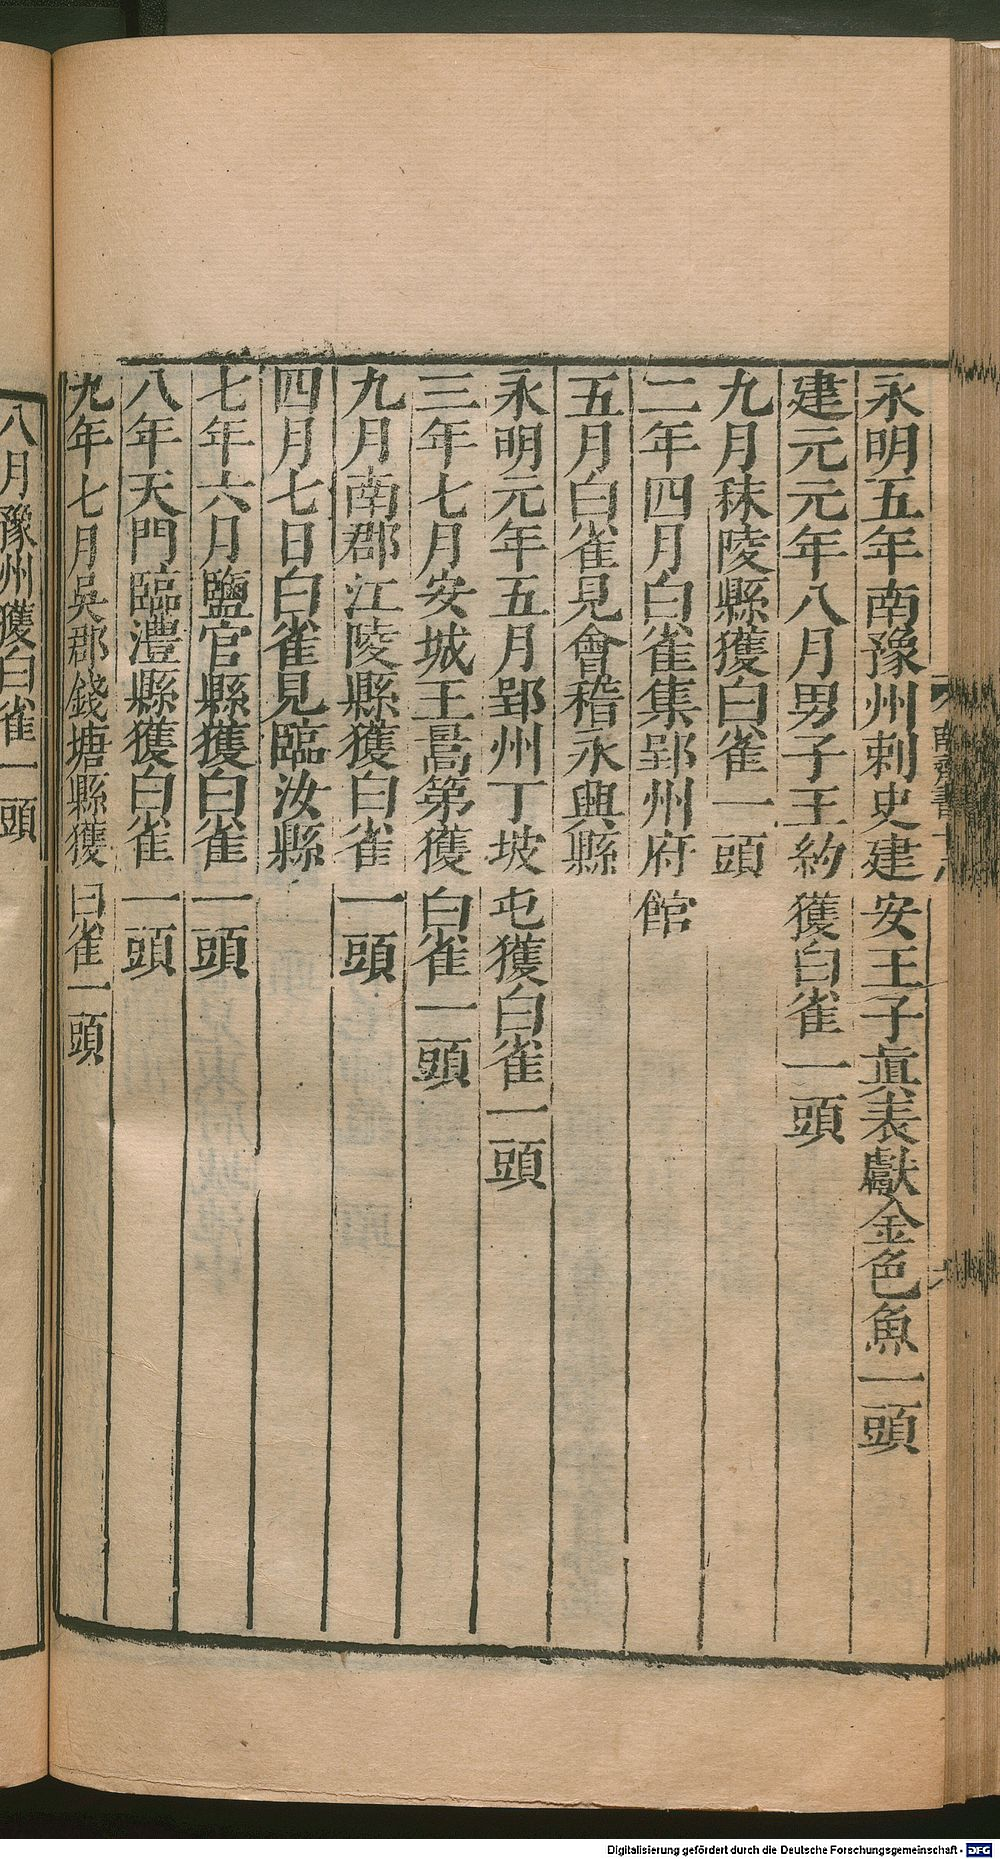 永明五年南豫州刺史建安王子眞表獻金色魚一頭
建元元年八月男子王約獲白雀一頭
九月秣陵縣獲白雀一頭
二年四月白雀集郢州府館
五月白雀見會稽永興縣
永明元年五月郢州丁坡屯獲白雀一頭
三年七月安城王暠第獲白雀一頭
九月南郡江陵縣獲白雀一頭
四月七日白雀見臨汝縣
七年六月鹽官縣獲白雀一頭
八年天門臨澧縣獲白雀一頭
九年七月吳郡錢塘縣獲白雀一頭
八月豫州獲白雀一頭
南齊書
Digitalisierung gefördert durch die Deutsche Forschungsgemeinschaft - DFG